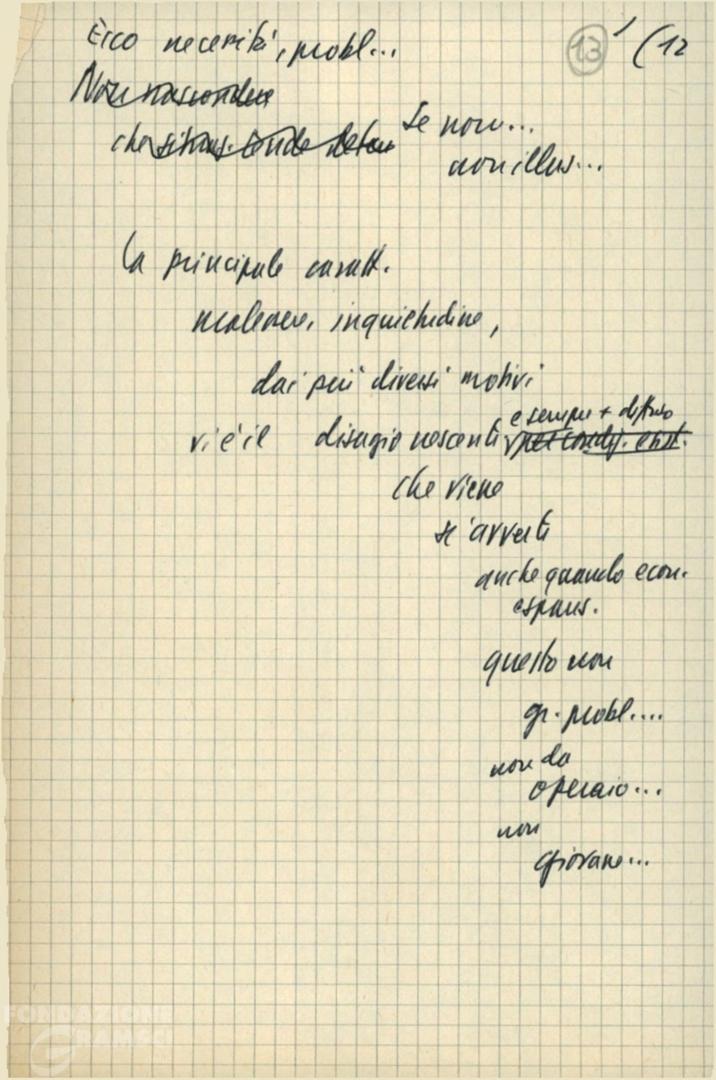 Ecco necessità, probl...
13 (12
Non nascondere
che
Se non...
non illus...
la principale caratt.
malessere, inquietudine,
dai più diversi motivi
e sempre + diffuso
vi è il disagio crescente
che viene
si avverte
anche quando econ.
espans.
questo non
gr. probl....
non da
operaio...
non
giovane...
FONDAZIONE
GRAMSCI